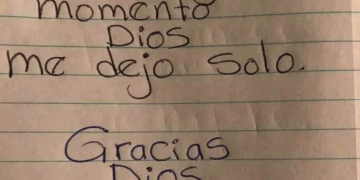 momento
Dios
me dejo solo.
Gracias
Dios